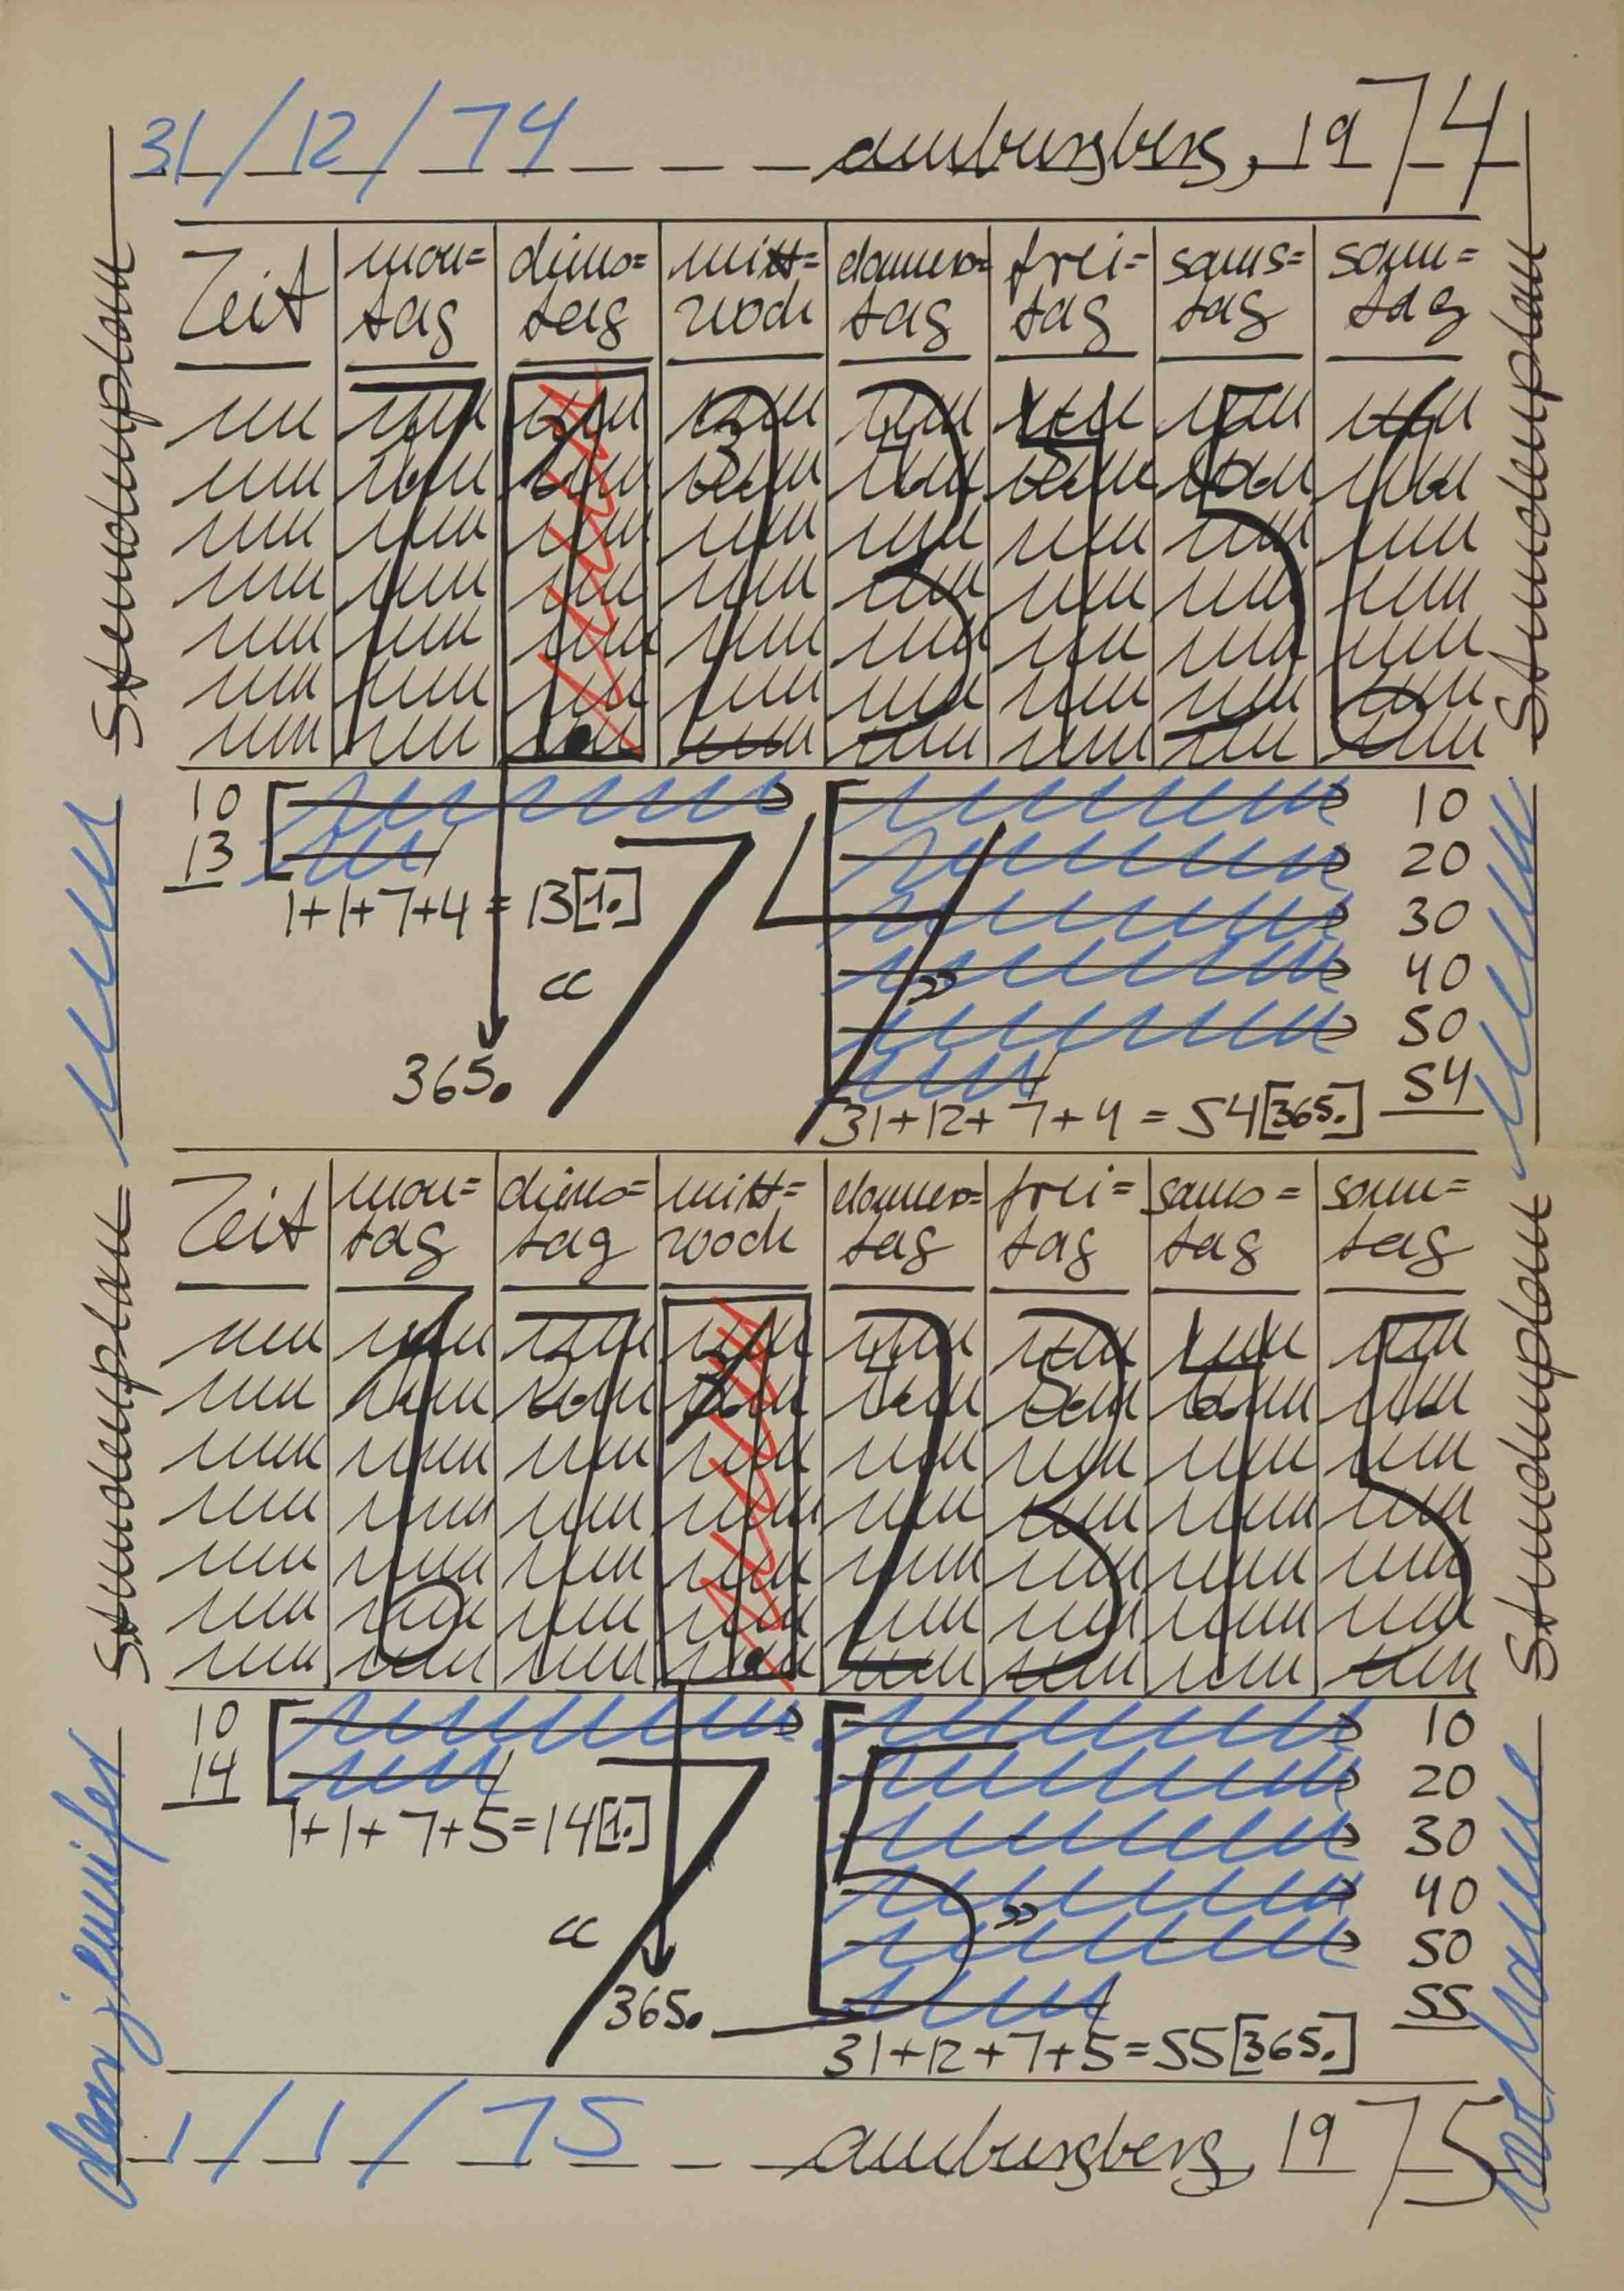 31/12/74 amburgberg, 1974
Stundenplan
Stundenplan
Zeit mon= diens= mitt= donners= frei= sams= sonn=
tag tag woch tag tag tag tag
7 1 2 3 4 5 6
1. 2. 3. 4. 5. 6. 7.
10 10
13 20
1+1+7+4=13[1.] 30
«74» 40
50
365. 54
31+12+7+4=54[365.]
Stundenplan
Stundenplan
Zeit mon= diens= mitt= donners= frei= sams= sonn=
tag tag woch tag tag tag tag
6 7 1 2 3 4 5
1. 2. 3. 4. 5. 6. 7.
10 10
14 20
1+1+7+5=14[1.] 30
«75» 40
50
365. 55
31+12+7+5=55[365.]
dear jennifer
1/1/75 amburgberg, 1975